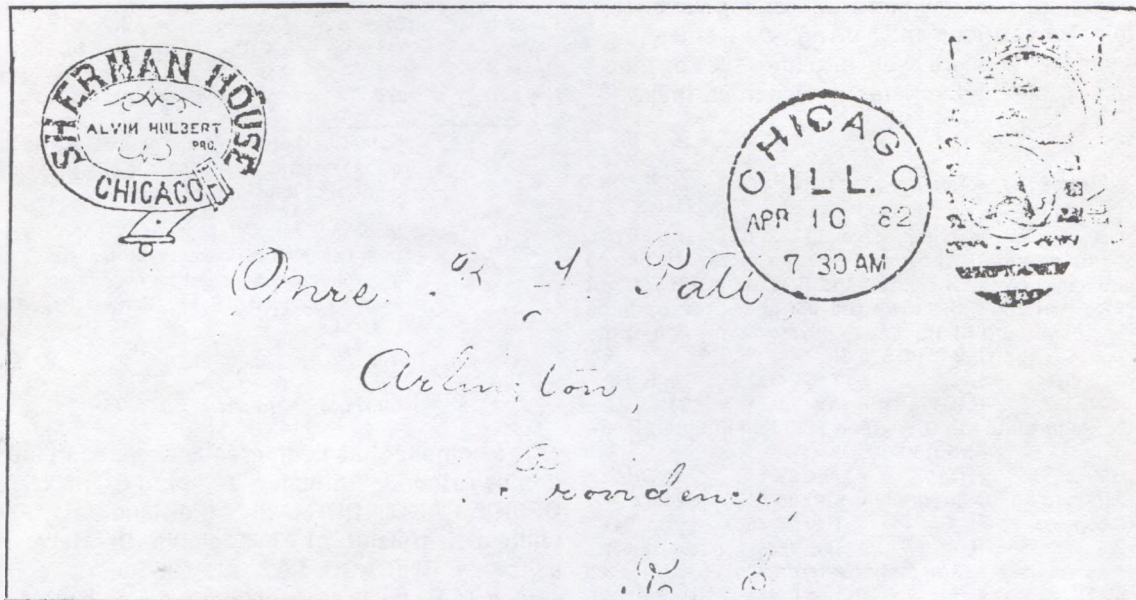 SHERMAN HOUSE
ALVIN HULBERT
PRO.
CHICAGO
CHICAGO
ILL.
APR 10 82
7 30 AM
Arlington,
Providence,